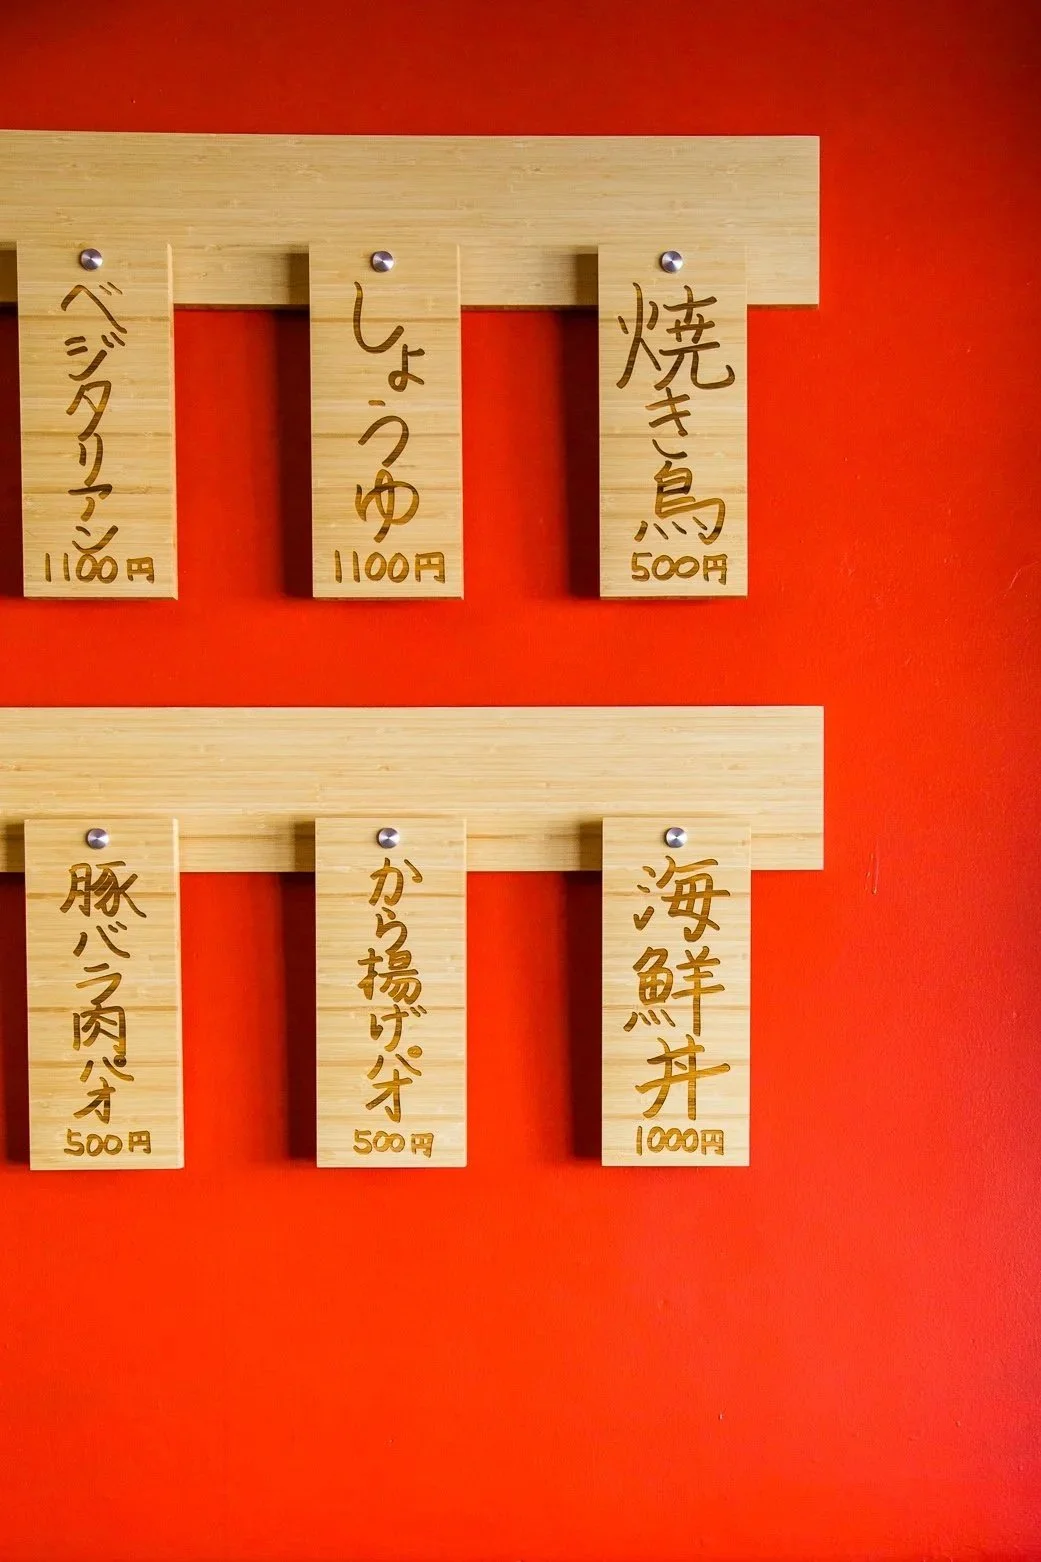 焼き鳥
500円
しょうゆ
1100円
ベジタリアン
1100円
海鮮丼
1000円
から揚げパオ
500円
豚バラ肉パオ
500円